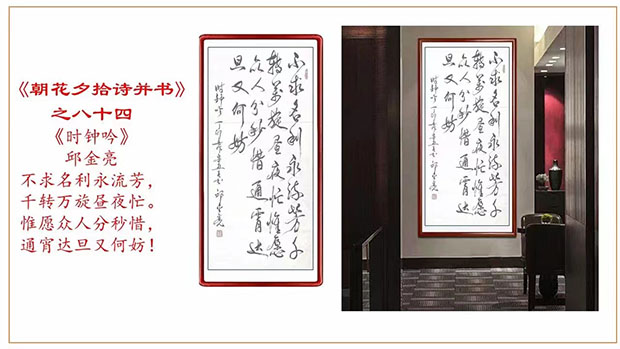 《朝花夕拾诗并书》
之八十四
《时钟吟》
邱金亮
不求名利永流芳，
千转万旋昼夜忙。
惟愿众人分秒惜，
通宵达旦又何妨！
不求名利永流芳千
转萬旋昼夜忙惟愿
众人分秒惜通宵达
旦又何妨
时钟吟
邱金亮
不求名利永流芳千
转萬旋昼夜忙惟愿
众人分秒惜通宵达
旦又何妨
时钟吟
邱金亮